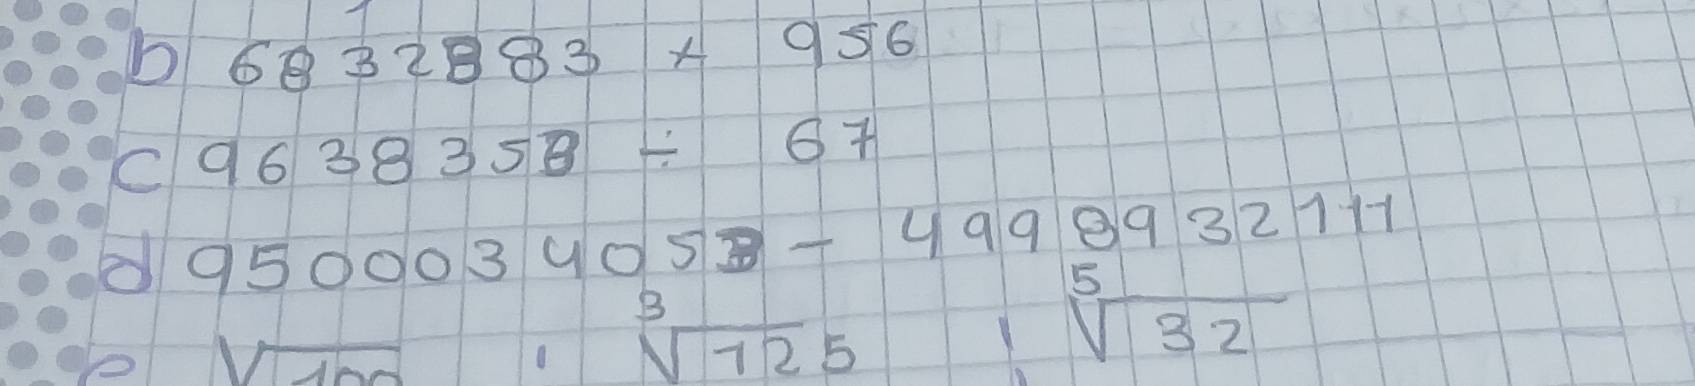 b 6832883 × 956
c 9638358 ÷ 67
d 9500034053 - 4998932111
e √100 , ³√125 , ⁵√32